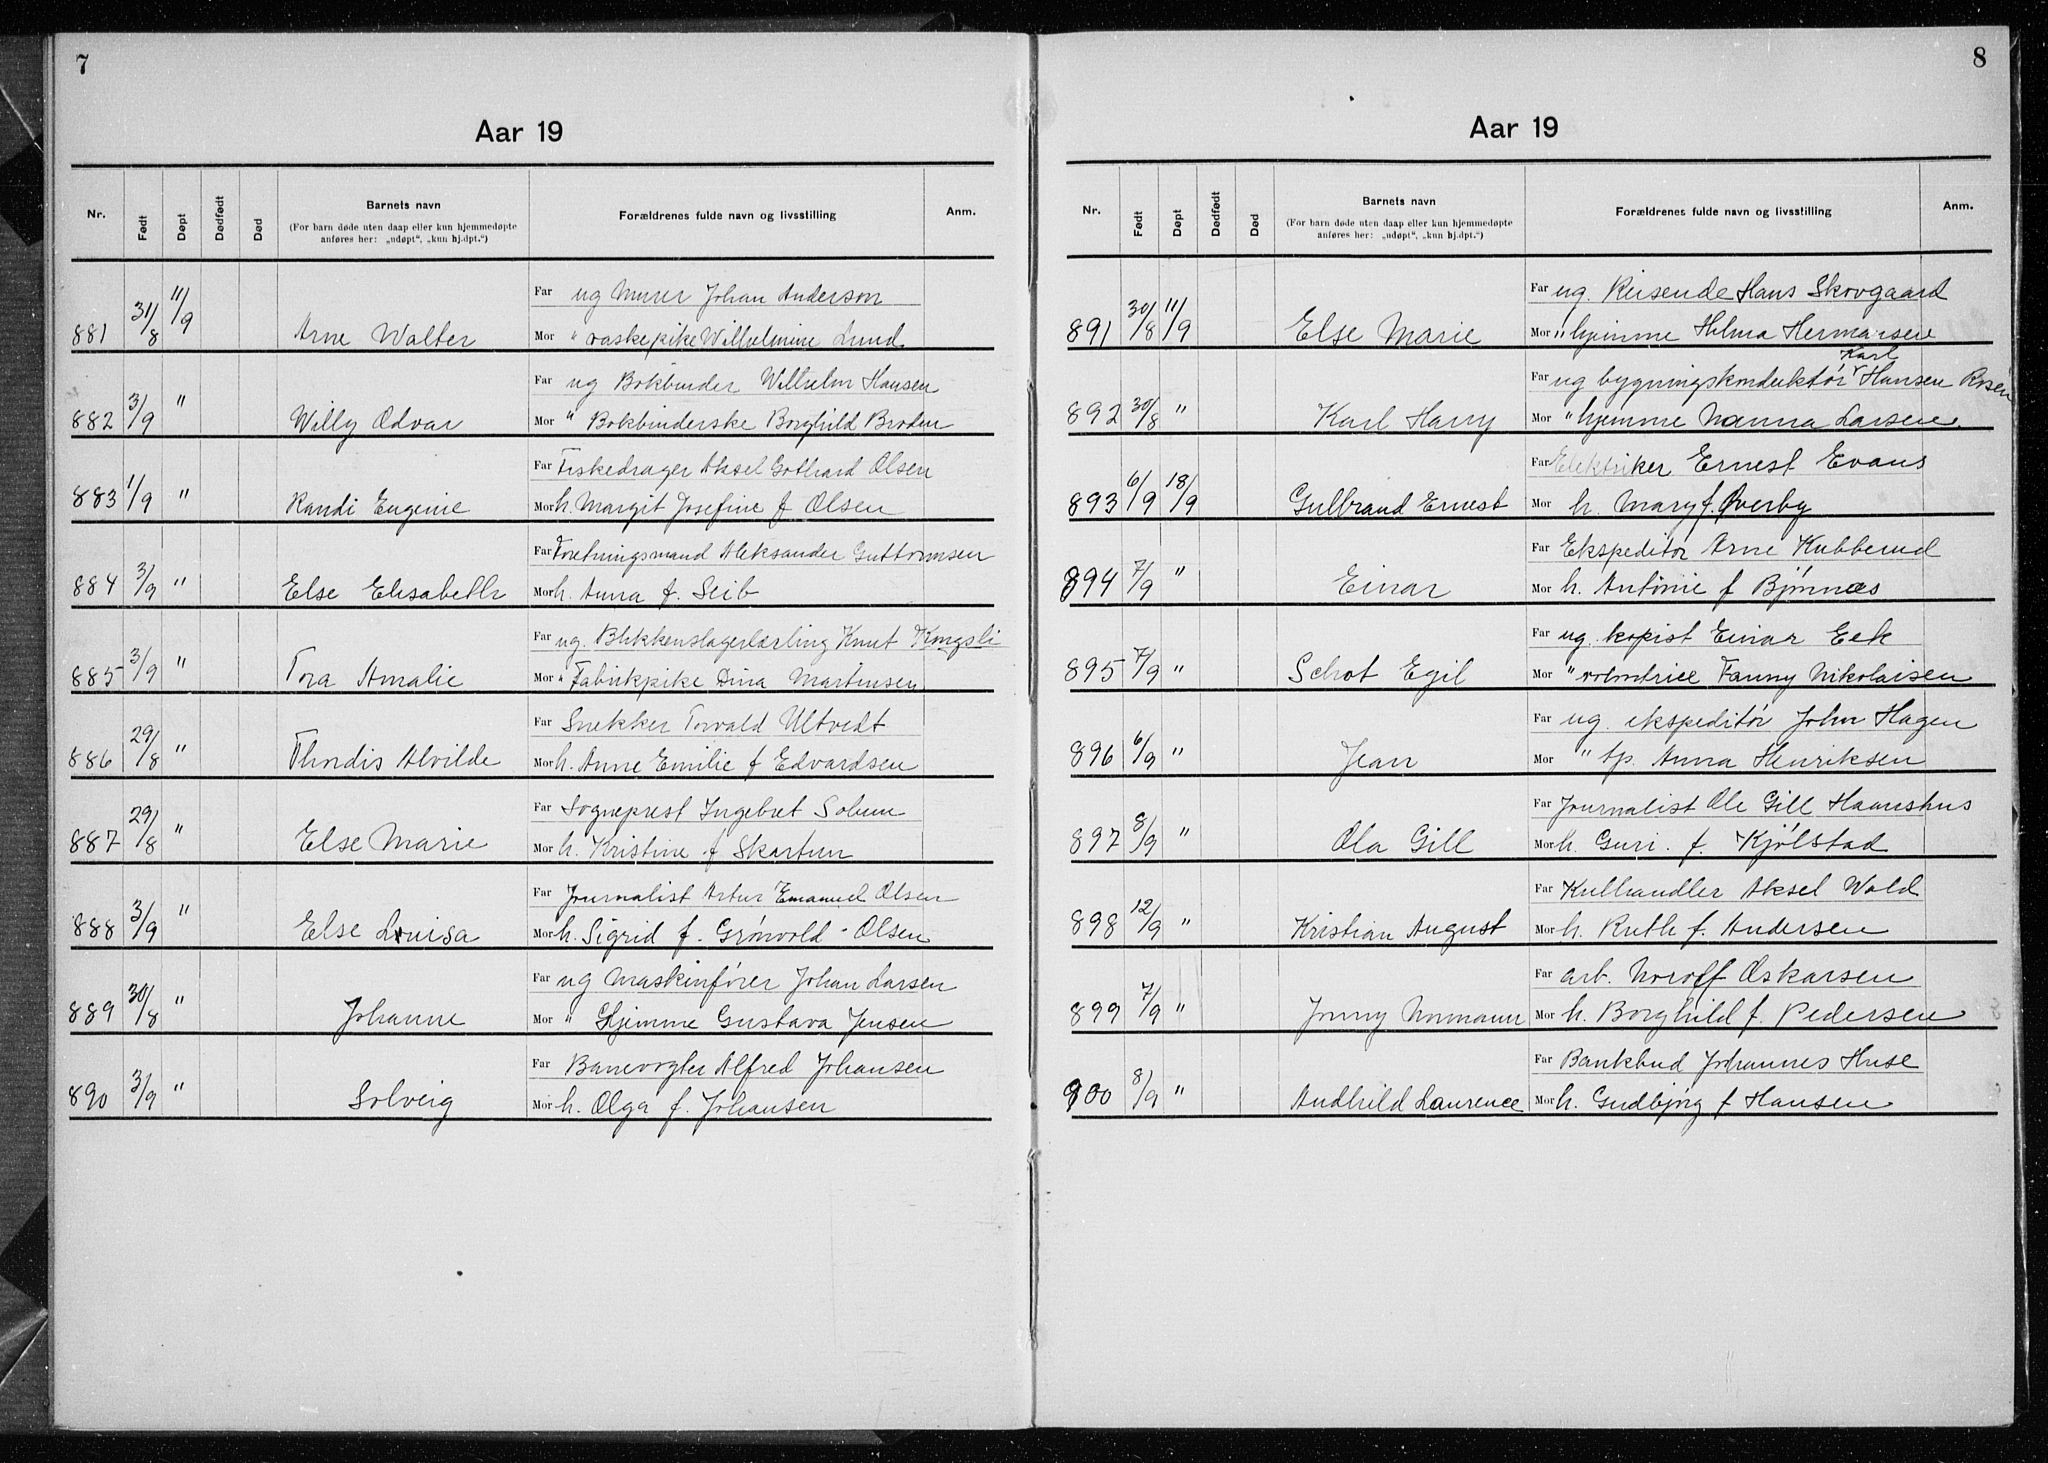 7
Aar 19
Nr. Født Døpt Dødfødt Død Barnets navn Forældrenes fulde navn og livsstilling Anm.
(For barn døde uten daap eller kun hjemmedøpte
anføres her: „udøpt“, „kun hj.dpt.“)
Far ug Murer Johan Anderson
881 31/8 11/9 Arne Walter Mor " vaskepike Wilhelmine Lund
Far ug Bokbinder Wilhelm Hansen
882 3/9 " Willy Odvar Mor " Bokbinderske Borghild Broden
Far Fiskedrager Aksel Gothard Olsen
883 1/9 " Randi Eugenie Mor h. Margit Josefine f Olsen
Far Foretningsmand Aleksander Guttormsen
884 3/9 " Else Elisabeth Mor h. Anna f. Seib
Far ug. Blikkenslagerlærling Knut Kongsli
885 3/9 " Tora Amalie Mor " Fabrikpike Dina Martinsen
Far Snekker Torvald Ultvedt
886 29/8 " Thordis Alvilde Mor h. Anne Emilie f Edvardsen
Far Sogneprest Ingebret Solum
887 29/8 " Else Marie Mor h. Kristine f Skartum
Far Journalist Artur Emanuel Olsen
888 3/9 " Else Louisa Mor h. Sigrid f. Grønvold - Olsen
Far ug Maskinfører Johan Larsen
889 30/8 " Johanne Mor " Hjemme Gustava Jensen
Far Banevogter Alfred Johansen
890 3/9 " Solveig Mor h. Olga f. Johansen
8
Aar 19
Nr. Født Døpt Dødfødt Død Barnets navn Forældrenes fulde navn og livsstilling Anm.
(For barn døde uten daap eller kun hjemmedøpte
anføres her: „udøpt“, „kun hj.dpt.“)
Far ug. Reisende Hans Skovgaard
891 30/8 11/9 Else Marie Mor " hjemme Hilma Hermansen
Karl
Far ug bygningskonduktør Hansen Rosen
892 30/8 " Karl Harry Mor " hjemme Nanna Larsen.
Far Elektriker Ernest Evans
893 6/9 18/9 Gulbrand Ernest Mor h. Mary f. Øverby
Far Ekspeditør Arne Kubberud
894 7/9 " Einar Mor h. Antonie f Bjørnnes
Far ug. kopist Einar Eek
895 7/9 " Schot Egil Mor " volontrice Fanny Nikolaisen
Far ug. ekspeditør John Hagen
896 6/9 " Jean Mor " tp. Anna Henriksen
Far Journalist Ole Gill Haanshus
897 8/9 " Ola Gill Mor h. Guri. f. Kjølstad
Far Kulhandler Aksel Wold
898 12/9 " Kristian August Mor h. Ruth f. Andersen
Far arb. Noroff Oskarsen
899 7/9 " Jonny Normann Mor h. Borghild f. Pedersen
Far Bankbud Johannes Huse
900 8/9 " Audhild Laurence Mor h. Gudbjørg f Hansen